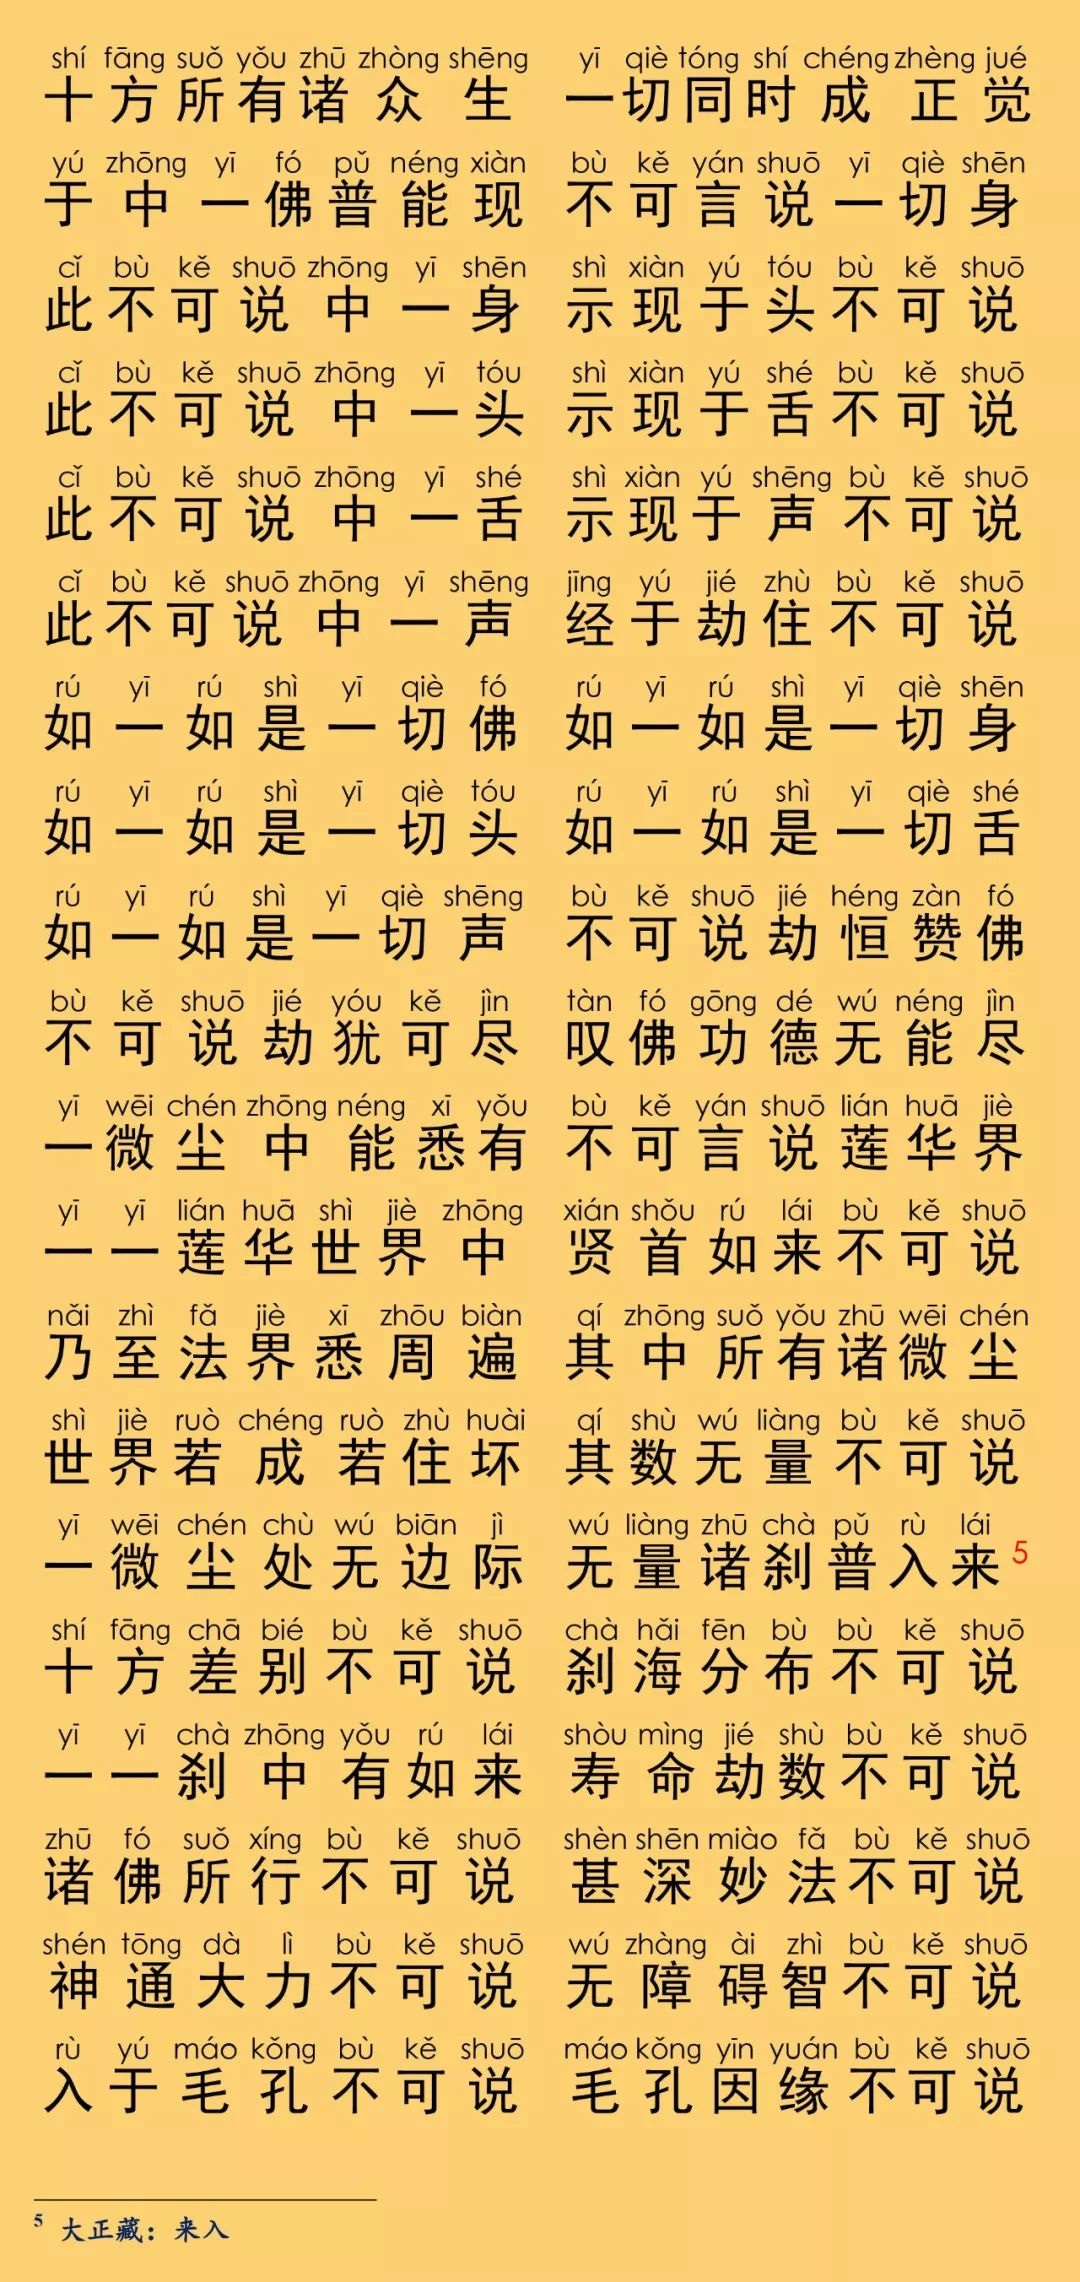 shí fāng suǒ yǒu zhū zhòng shēng yī qiè tóng shí chéng zhèng jué
十方所有诸众生 一切同时成正觉
yú zhōng yī fó pǔ néng xiàn bù kě yán shuō yī qiè shēn
于中一佛普能现 不可言说一切身
cǐ bù kě shuō zhōng yī shēn shì xiàn yú tóu bù kě shuō
此不可说中一身 示现于头不可说
cǐ bù kě shuō zhōng yī tóu shì xiàn yú shé bù kě shuō
此不可说中一头 示现于舌不可说
cǐ bù kě shuō zhōng yī shé shì xiàn yú shēng bù kě shuō
此不可说中一舌 示现于声不可说
cǐ bù kě shuō zhōng yī shēng jīng yú jié zhù bù kě shuō
此不可说中一声 经于劫住不可说
rú yī rú shì yī qiè fó rú yī rú shì yī qiè shēn
如一如是一切佛 如一如是一切身
rú yī rú shì yī qiè tóu rú yī rú shì yī qiè shé
如一如是一切头 如一如是一切舌
rú yī rú shì yī qiè shēng bù kě shuō jié héng zàn fó
如一如是一切声 不可说劫恒赞佛
bù kě shuō jié yóu kě jìn tàn fó gōng dé wú néng jìn
不可说劫犹可尽 叹佛功德无能尽
yī wēi chén zhōng néng xī yǒu bù kě yán shuō lián huā jiè
一微尘中能悉有 不可言说莲华界
yī yī lián huā shì jiè zhōng xián shǒu rú lái bù kě shuō
一一莲华世界中 贤首如来不可说
nǎi zhì fǎ jiè xī zhōu biàn qí zhōng suǒ yǒu zhū wēi chén
乃至法界悉周遍 其中所有诸微尘
shì jiè ruò chéng ruò zhù huài qí shù wú liàng bù kě shuō
世界若成若住坏 其数无量不可说
yī wēi chén chù wú biān jì wú liàng zhū chà pǔ rù lái
一微尘处无边际 无量诸刹普入来5
shí fāng chā bié bù kě shuō chà hǎi fēn bù bù kě shuō
十方差别不可说 刹海分布不可说
yī yī chà zhōng yǒu rú lái shòu mìng jié shù bù kě shuō
一一刹中有如来 寿命劫数不可说
zhū fó suǒ xíng bù kě shuō shèn shēn miào fǎ bù kě shuō
诸佛所行不可说 甚深妙法不可说
shén tōng dà lì bù kě shuō wú zhàng ài zhì bù kě shuō
神通大力不可说 无障碍智不可说
rù yú máo kǒng bù kě shuō máo kǒng yīn yuán bù kě shuō
入于毛孔不可说 毛孔因缘不可说
5 大正藏：来入